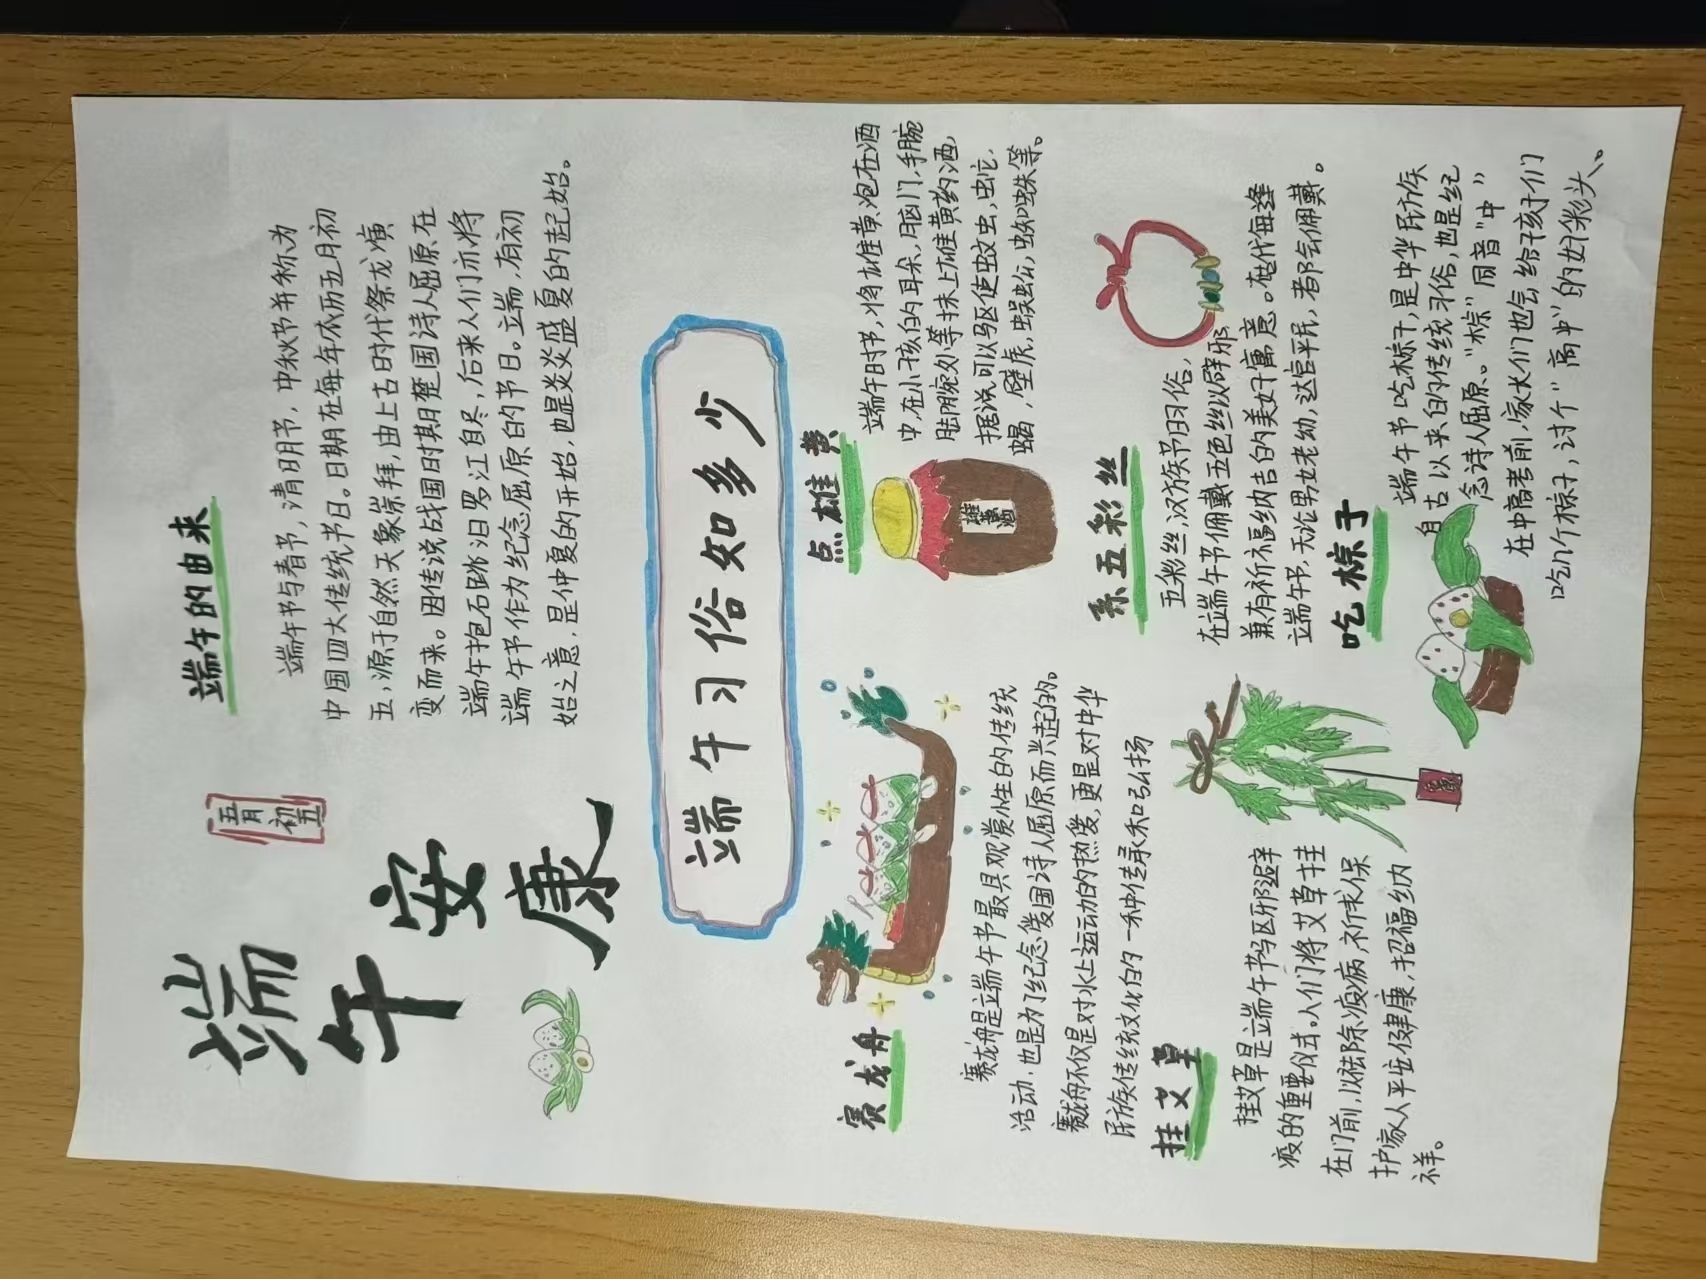 端午安康
五月
初五
端午的由来
端午节与春节，清明节，中秋节并称为
中国四大传统节日。日期在每年农历五月初
五，源于自然天象崇拜，由上古时代祭龙演
变而来。因传说战国时期楚国诗人屈原在
端午抱石跳汨罗江自尽，后来人们亦将
端午节作为纪念屈原的节日。端，有初
始之意，是仲夏的开始，也是炎炎盛夏的起始。
端午习俗如多少
赛龙舟
赛龙舟是端午节最具观赏性的传统
活动，也是为了纪念爱国诗人屈原而兴起的。
赛龙舟不仅是对水上运动的热爱，更是对中华
民族传统文化的一种传承和弘扬
挂艾草
挂艾草是端午节驱邪避
疫的重要仪式。人们将艾草挂
在门前，以祛除疫病，祈求保
护家人平安健康，招福纳
祥。
点雄黄
雄黄酒
端午时节，将雄黄泡在酒
中，在小孩的耳朵，脑门，手腕
脚腕处等抹上雄黄药酒，
据说可以驱使蚊虫，蛇，
蝎，壁虎，蜈蚣，蜘蛛等。
系五彩丝
五彩丝，汉族节日习俗，
在端午节佩戴五色丝以辟邪
兼有祈福纳吉的美好寓意。在古代每逢
端午节，无论男女老幼，达官平民，都会佩戴。
吃粽子
端午节吃粽子，是中华民族
自古以来的传统习俗，也是纪
念诗人屈原。"粽"同音"中"
在中高考前，家长们也会给孩子们
吃几个粽子，讨个"高中"的好彩头、。